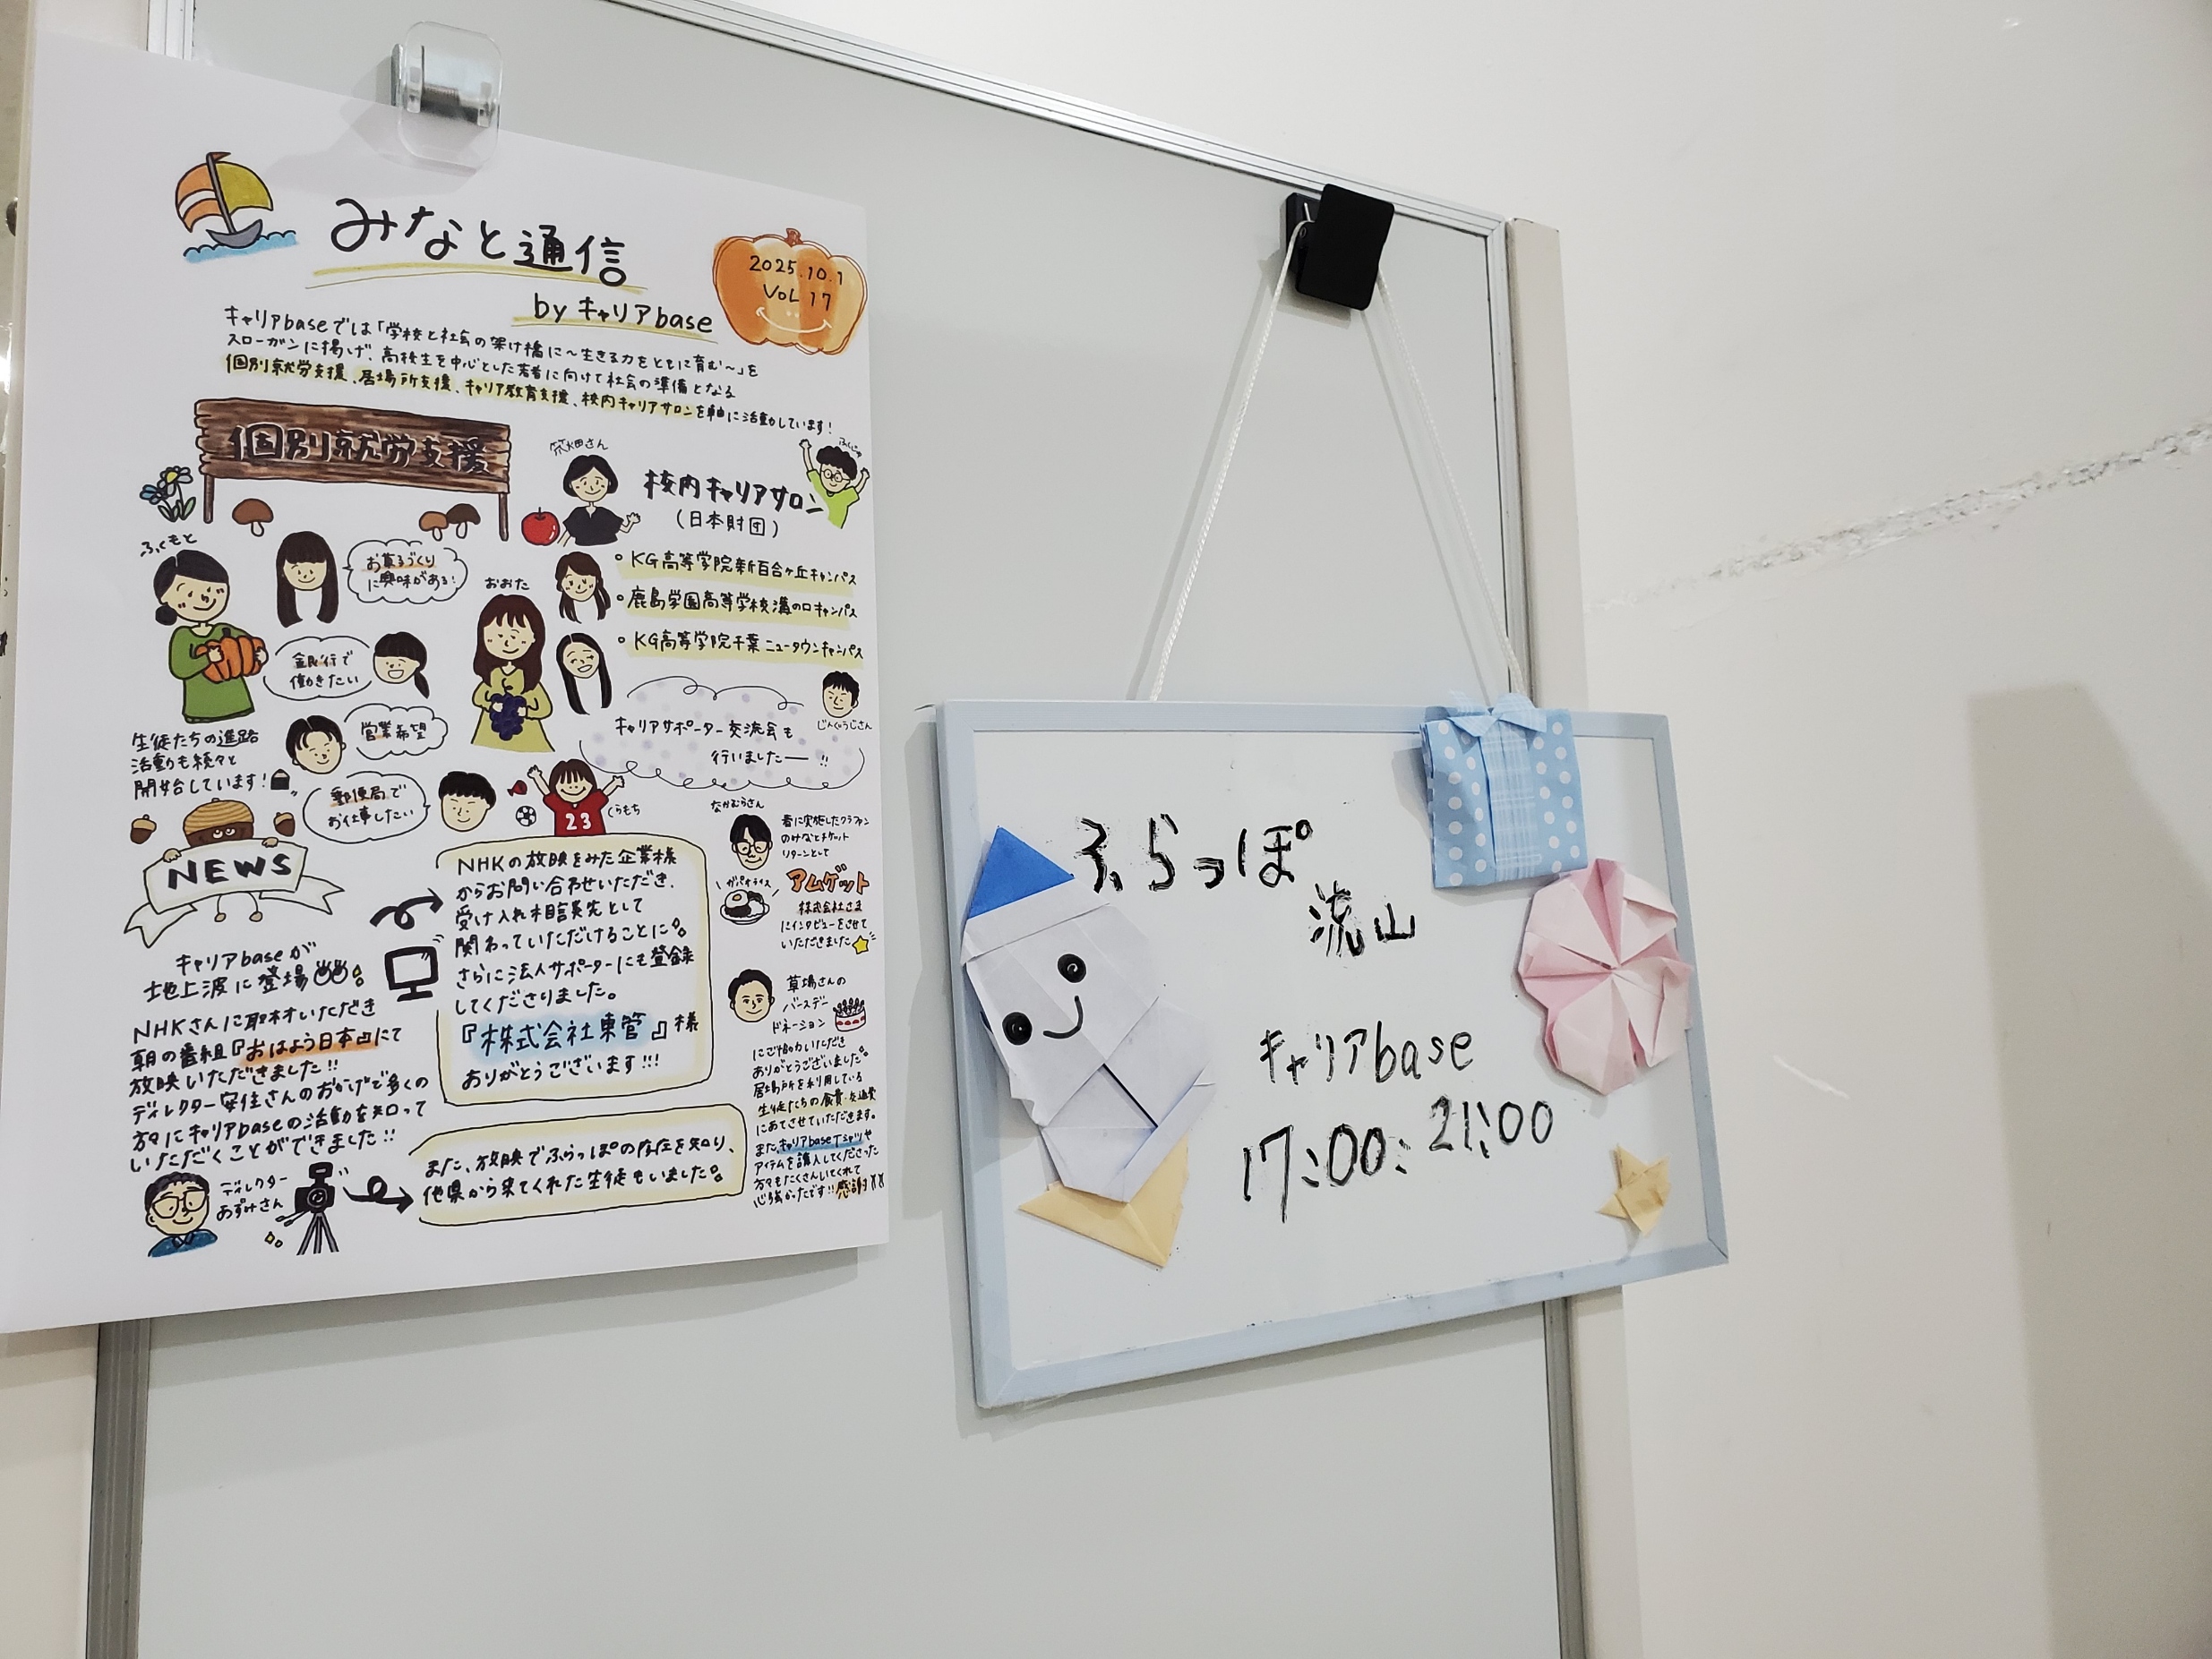 みなと通信
by キャリアbase
2025.10.1
VOL 17
キャリアbaseでは「学校と社会の架け橋に～生きる力をともに育む～」を
スローガンに掲げ、高校生を中心とした若者に向けて社会の準備となる
個別就労支援、居場所支援、キャリア教育支援、校内キャリアサロンを軸に活動しています!
個別就労支援
ふくもと
お菓子づくり
に興味がある!
おおた
銀行で
働きたい
営業希望
郵便局で
お仕事したい
生徒たちの進路
活動も続々と
開始しています!
くらもち
23
校内キャリアサロン
(日本財団)
KG高等学院新百合ヶ丘キャンパス
鹿島学園高等学校溝の口キャンパス
KG高等学院千葉ニュータウンキャンパス
キャリアサポーター交流会も
行いましたー!!
じんぐうじさん
NEWS
キャリアbaseが
地上波に登場
NHKさんに取材いただき
朝の番組『おはよう日本』にて
放映いただきました!!
ディレクター安住さんのおかげで多くの
方々にキャリアbaseの活動を知って
いただくことができました!!
ディレクター
あずみさん
NHKの放映をみた企業様
からお問い合わせいただき、
受け入れ相談先として
関わっていただけることに。
さらに法人サポーターにも登録
してくださりました。
『株式会社東管』様
ありがとうございます!!!
また、放映でふらっぽの存在を知り、
他県から来てくれた生徒もいました。
なかむらさん
春に実施したクラファン
のみなとチケット
リターンとして
ガパオライス
アムゲット
株式会社さま
にインタビューをさせて
いただきました
草場さんの
バースデー
ドネーション
にご協力いただき
ありがとうございました。
居場所を利用している
生徒たちの食費・交通費
にあてさせていただきます。
また、キャリアbaseTシャツや
アイテムを購入してくださった
方々もたくさんいてくれて
心強かったです!! 感謝
ふらっぽ
流山
キャリアbase
17:00: 21:00